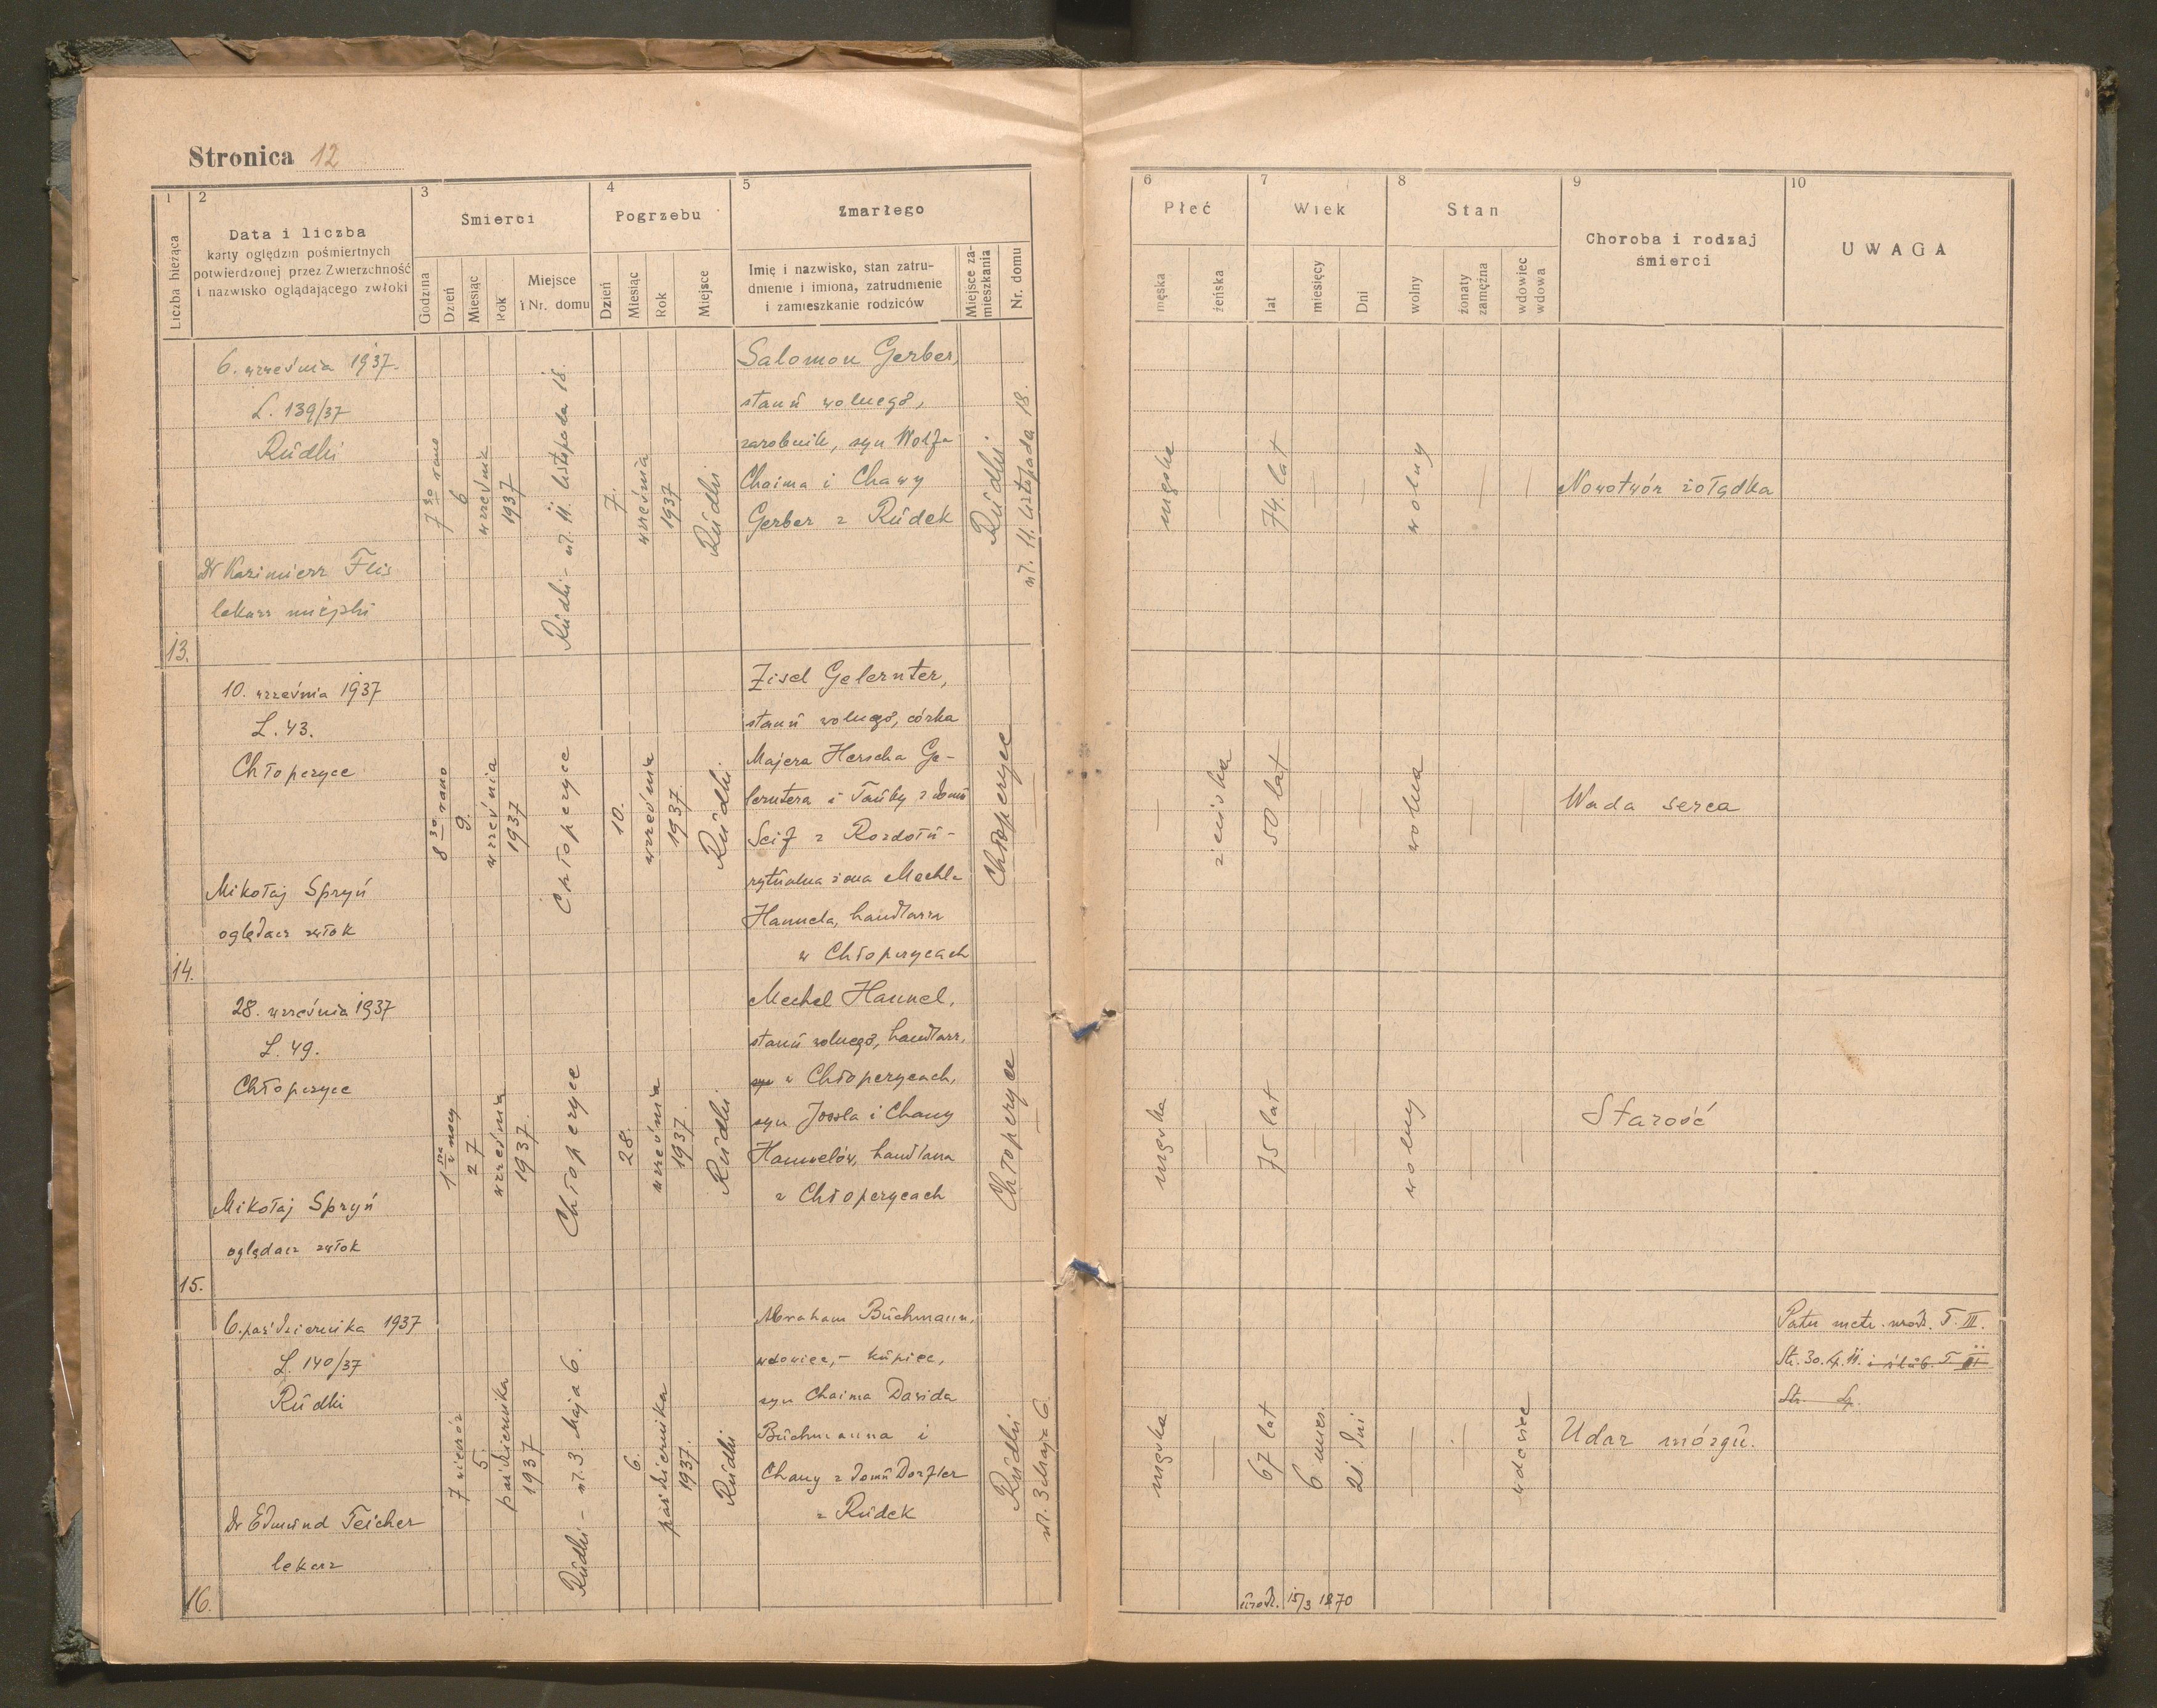 Stronica 12
1
2
3
4
5
6
7
8
9
10
Liczba bieżąca
Data i liczba
karty oględzin pośmiertnych
potwierdzonej przez Zwierzchność
i nazwisko oglądającego zwłoki
Śmierci
Godzina
Dzień
Miesiąc
Rok
Miejsce
i Nr. domu
Pogrzebu
Dzień
Miesiąc
Rok
Miejsce
Zmarłego
Imię i nazwisko, stan zatru-
dnienie i imiona, zatrudnienie
i zamieszkanie rodziców
Miejsce za-
mieszkania
Nr. domu
Płeć
męska
żeńska
Wiek
lat
miesięcy
Dni
Stan
wolny
żonaty
zamężna
wdowiec
wdowa
Choroba i rodzaj
śmierci
UWAGA
13.
6. września 1937.
L. 139/37
Rudki
Dr Kazimierz Flis
lekarz miejski
7 30 rano
6
wrześnik
1937
Rudki - ul. 11 listopada 18.
7.
września
1937
Rudki
Salomon Gerber,
stanu wolnego,
zarobnik, syn Wolfa
Chaima i Chawy
Gerber z Rudek
Rudki
ul. 11. Listopada 18.
męska
74. lat
wolny
Nowotwór żołądka
14.
10. września 1937
L. 43.
Chłopczyce
Mikołaj Spryń
oglądacz zwłok
8 30 rano
9.
września
1937
Chłopczyce
10.
września
1937.
Rudki
Zisel Gelernter,
stanu wolnego, córka
Majera Herscha Ge-
lerntera i Tauby z domu
Seif z Rozdołu -
rytualna żona Mechla
Hannela, handlarza
w Chłopczycach
Chłopczyce
żeńska
50 lat
wolna
Wada serca
15.
28. września 1937
L. 49.
Chłopczyce
Mikołaj Spryń
oglądacz zwłok
1 sza w nocy
27
września
1937.
Chłopczyce
28.
września
1937.
Rudki
Mechel Hannel,
stanu wolnego, handlarz,
syn w Chłopczycach,
syn Jossla i Chany
Hannelów, handlarza
w Chłopczycach
Chłopczyce
męska
75 lat
wolny
Starość
16.
6. października 1937
L. 140/37
Rudki
Dr Edmund Teicher
lekarz
7 wieczór
5.
października
1937
Rudki - ul. 3. Maja 6.
6.
października
1937.
Rudki
Abraham Buchmann,
wdowiec, - kupiec,
syn Chaima Dawida
Buchmanna i
Chany z domu Dorfler
z Rudek
Rudki
ul. 3 Maja 6.
męska
67 lat
6 mies.
21. dni
wdowiec
Udar mózgu.
Patrz metr. urodz. T. III.
Str. 30. Lp. 11. i ślub. T III
Str. Lp.
urodz. 15/3 1870